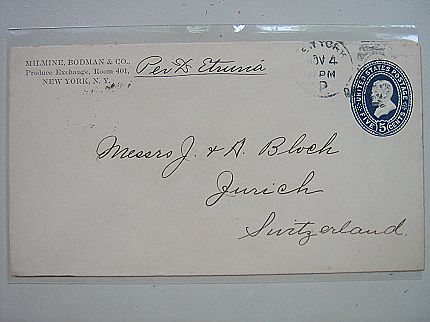 MILMINE, BODMAN & CO.,
Produce Exchange, Room 401,
NEW YORK, N. Y.
Per SS Etruria
NEW YORK
NOV 4
PM
D
UNITED STATES POSTAGE
5
FIVE CENTS
Messrs J. & A. Bloch
Zurich
Switzerland.